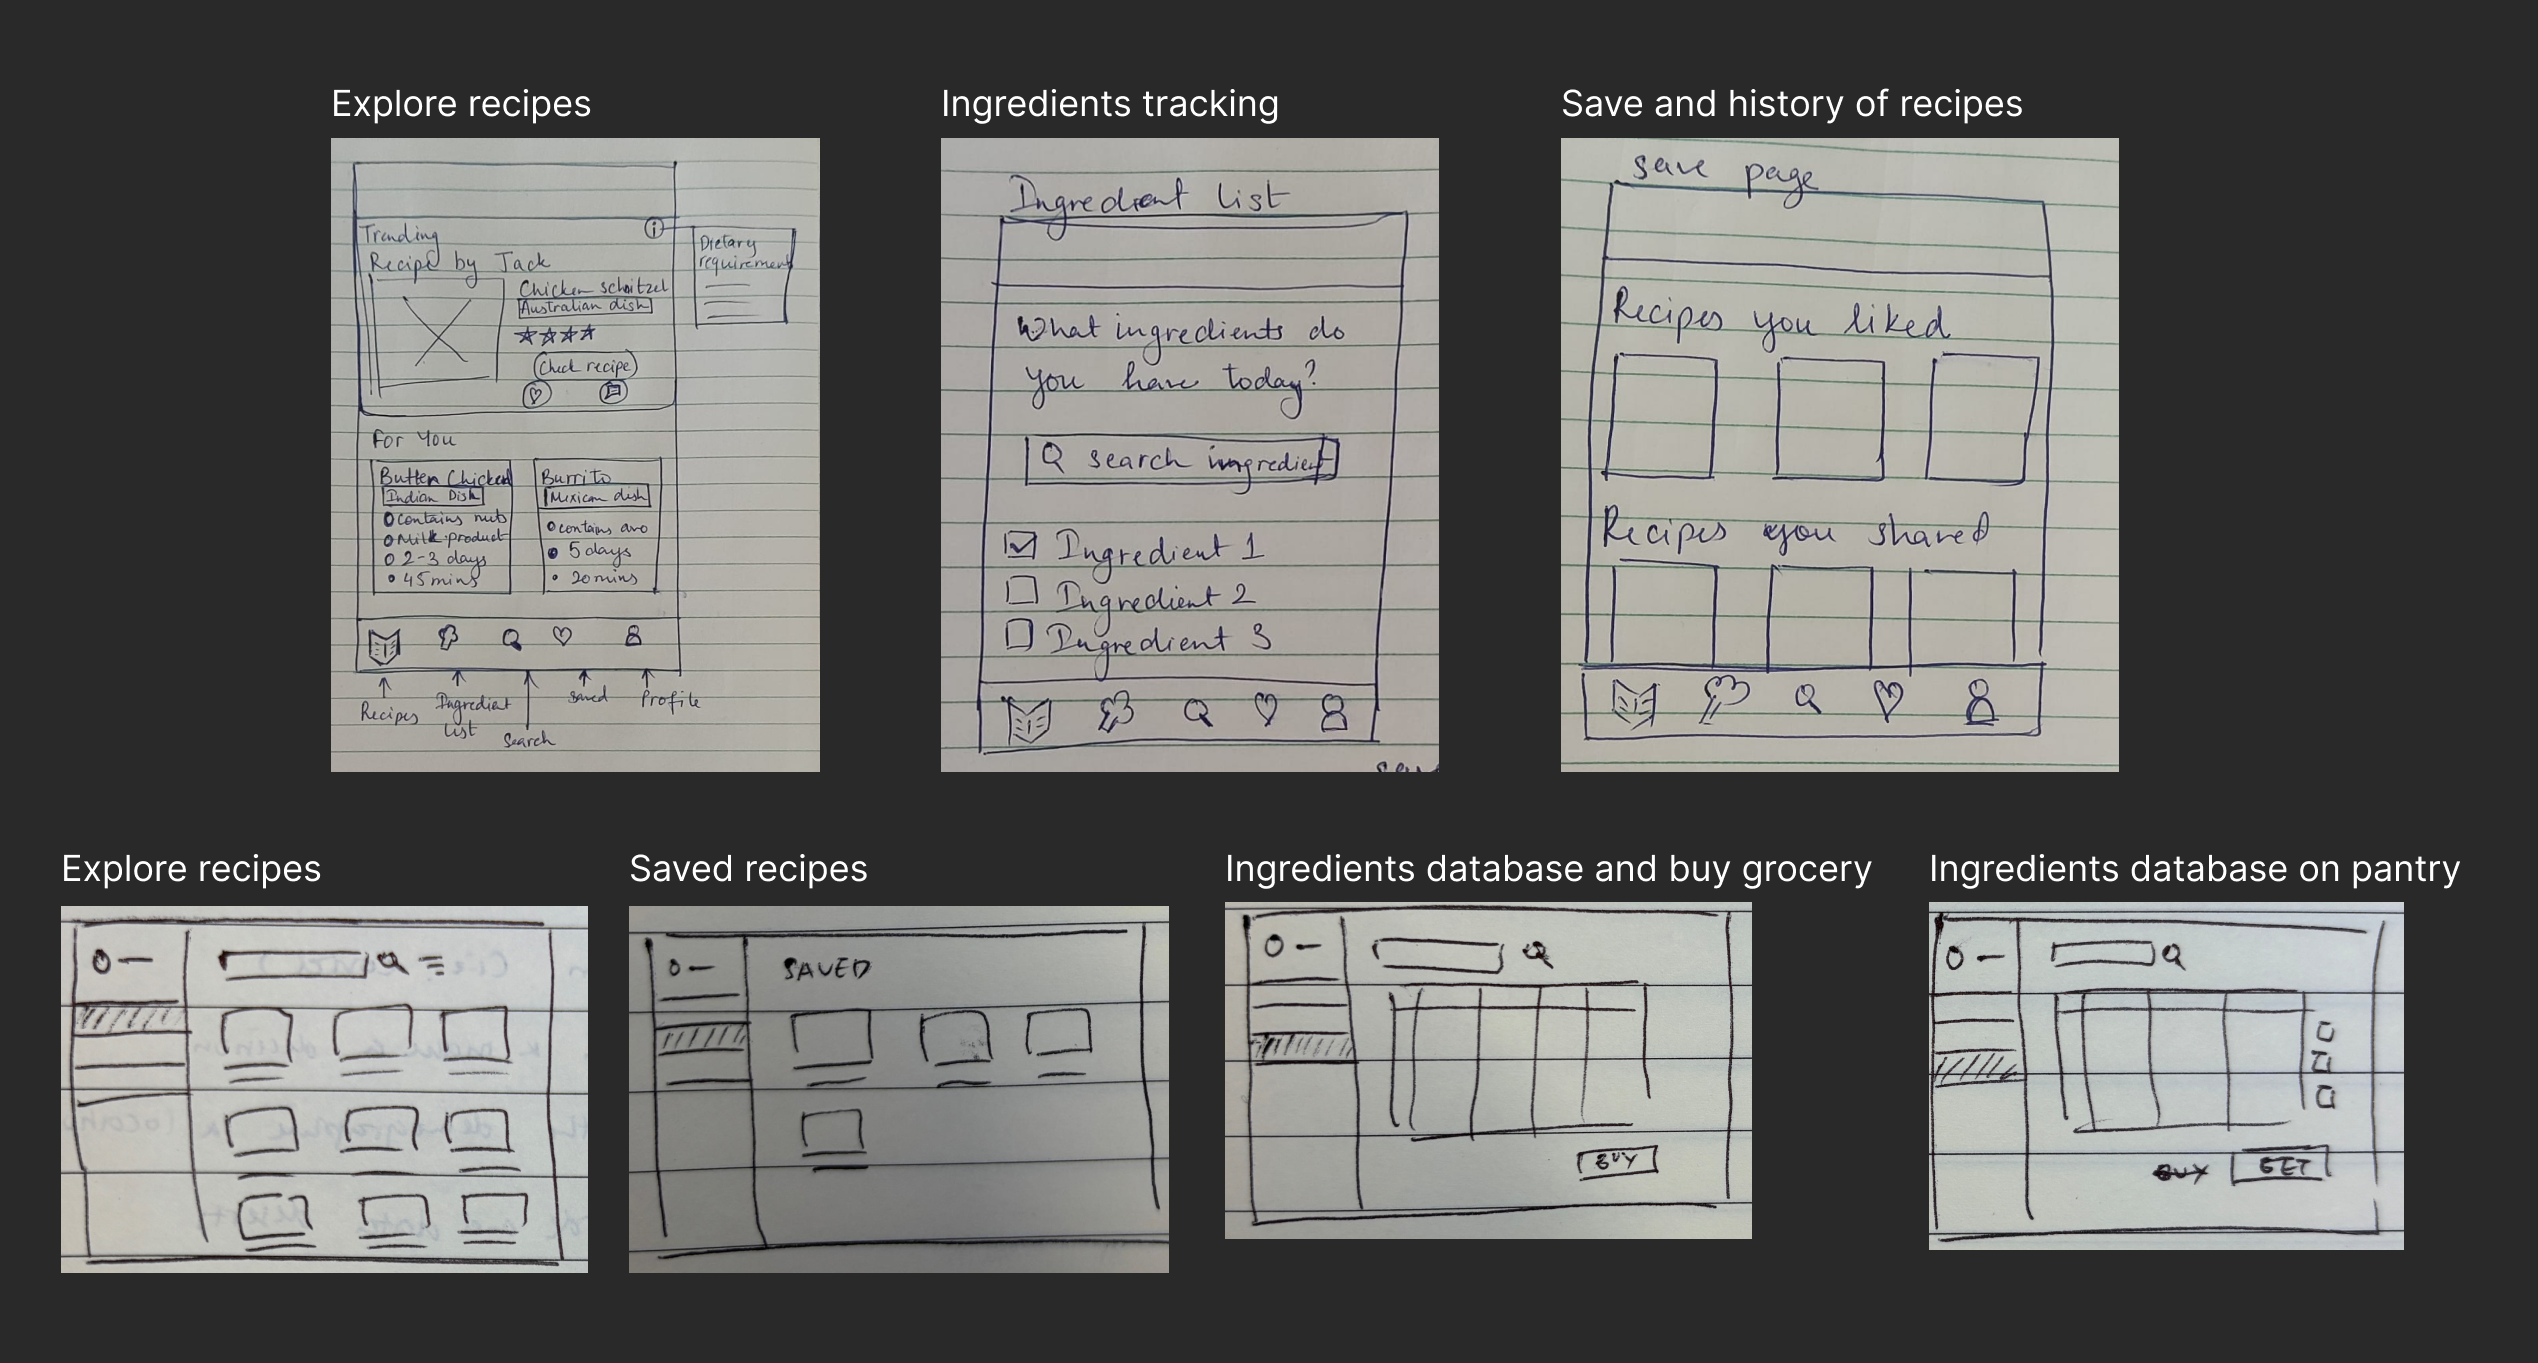 Explore recipes
Ingredients tracking
Save and history of recipes
Trending
Recipe by Jack
Chicken schnitzel
Australian dish
Check recipe
Dietary
requirement
For You
Butter Chicken
Indian Dish
contains nuts
Milk product
2-3 days
45 mins
Burrito
Mexican dish
contains avo
5 days
20 mins
Recipes
Ingredient
list
Search
saved
Profile
Ingredient list
What ingredients do
you have today?
search ingredient
Ingredient 1
Ingredient 2
Ingredient 3
save page
Recipes you liked
Recipes you shared
Explore recipes
Saved recipes
Ingredients database and buy grocery
Ingredients database on pantry
SAVED
BUY
BUY
GET